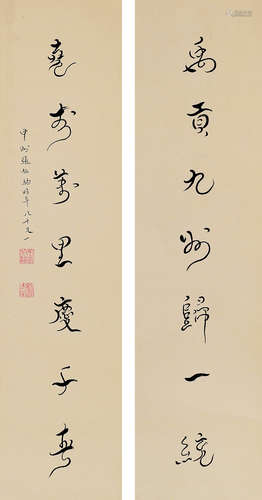 禹貢九州歸一統
堯封萬里慶千春
中州張伯駒時年八十又一